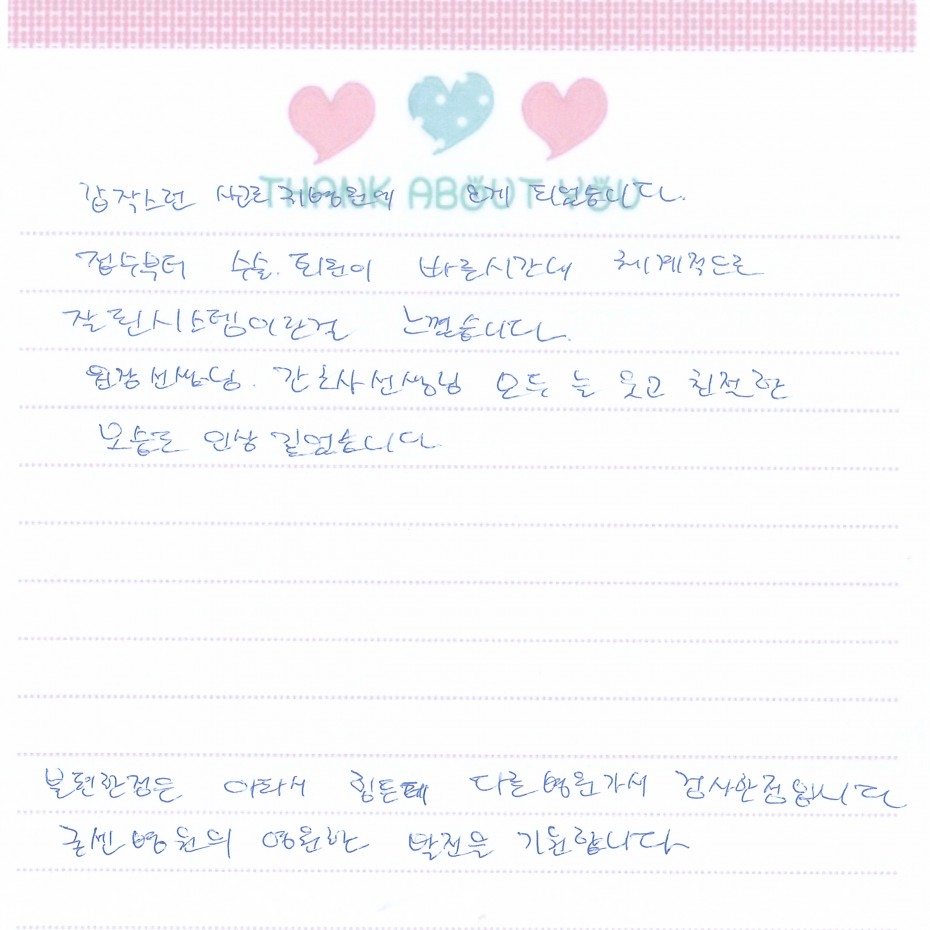 THANK ABOUT YOU
갑작스런 사고로 귀병원에 오게 되었습니다.
접수부터 수술. 퇴원이 빠른시간내 체계적으로
잘 된시스템이란걸 느꼈습니다.
원장선생님. 간호사선생님 모두 늘 웃고 친절한
모습도 인상 깊었습니다
불편한점은 아파서 힘든데 다른병원가서 검사한점입니다
굳센병원의 영원한 발전을 기원합니다